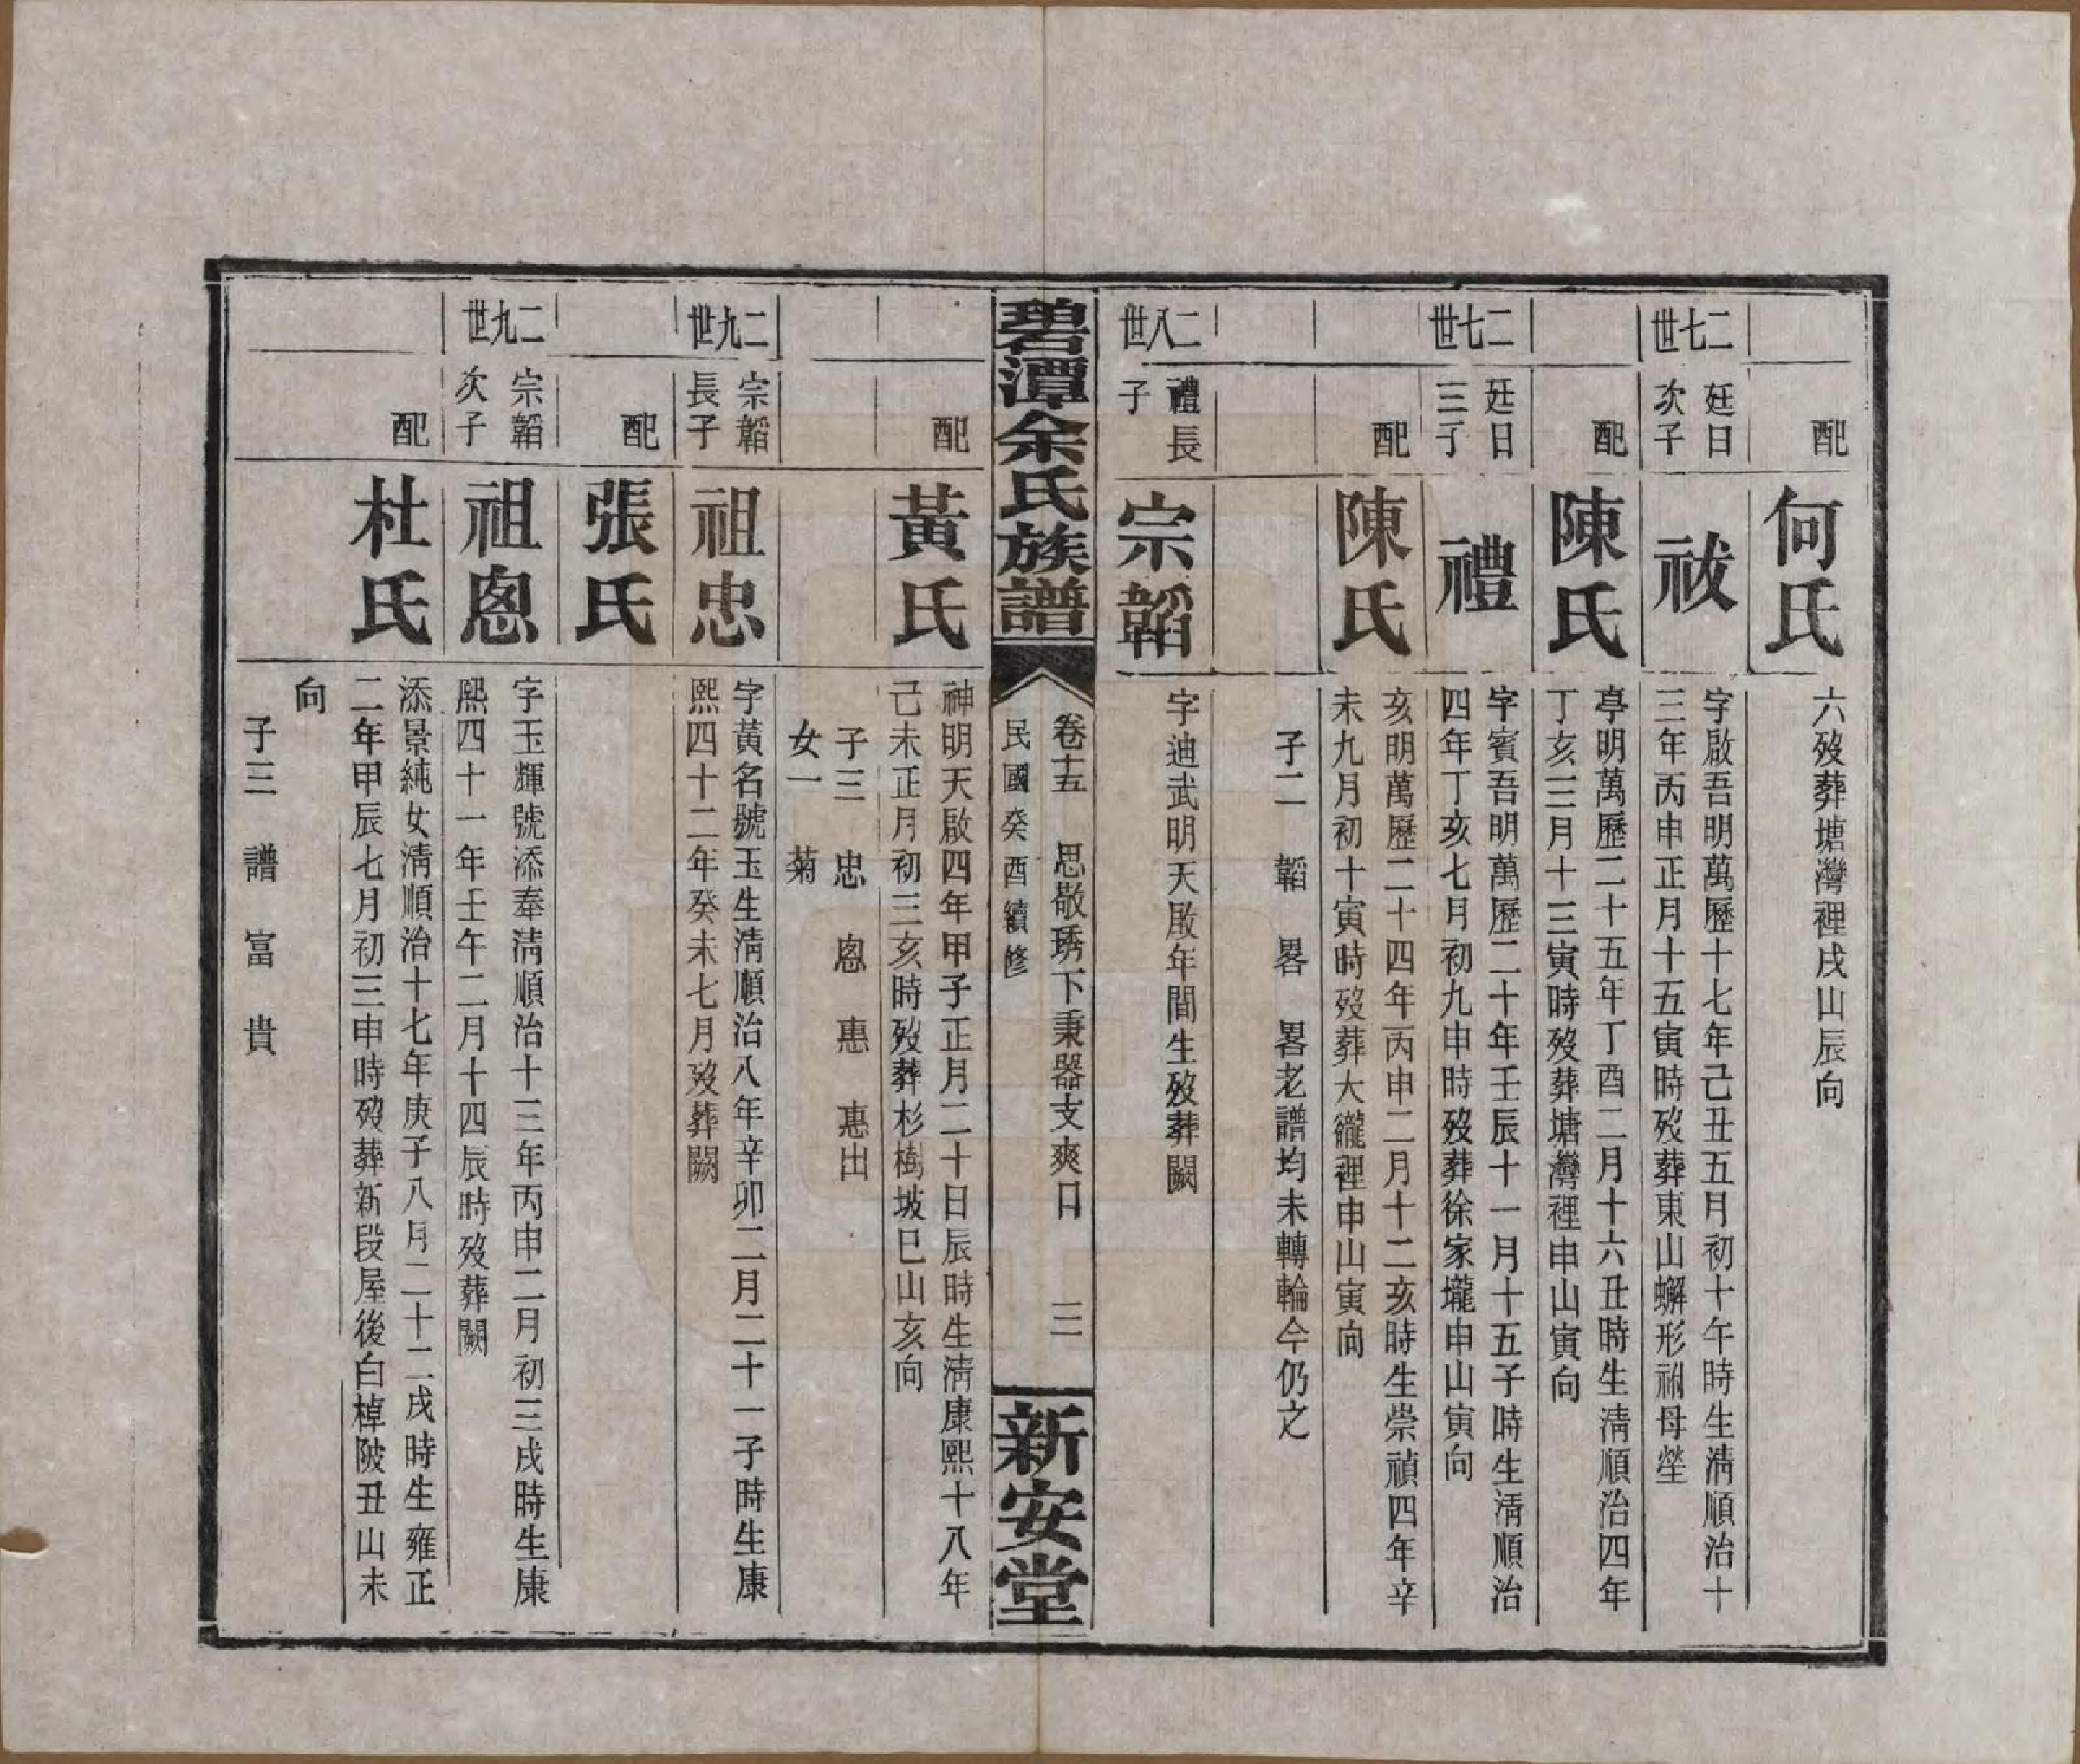 配
何氏
六歿葬塘灣裡戌山辰向
二七世
廷日
次子
祓
字啟吾明萬歷十七年己丑五月初十午時生淸順治十
三年丙申正月十五寅時歿葬東山蠏形祔母塋
配
陳氏
亭明萬歷二十五年丁酉二月十六丑時生淸順治四年
丁亥三月十三寅時歿葬塘灣裡申山寅向
二七世
廷日
三子
禮
字賓吾明萬歷二十年壬辰十一月十五子時生淸順治
四年丁亥七月初九申時歿葬徐家壠申山寅向
配
陳氏
亥明萬歷二十四年丙申二月十二亥時生崇禎四年辛
未九月初十寅時歿葬大裡申山寅向
子二 韜 畧 畧老譜均未轉輪今仍之
二八世
禮長
子
宗韜
字迪武明天啟年間生歿葬闕
碧潭余氏族譜
卷十五 思敬琇下秉器支爽日 三
民國癸酉續修
新安堂
配
黃氏
神明天啟四年甲子正月二十日辰時生淸康熙十八年
己未正月初三亥時歿葬杉樹坡巳山亥向
子三 忠 恩 惠 惠出
女一 菊
二九世
宗韜
長子
祖忠
字黃名號玉生淸順治八年辛卯二月二十一子時生康
熙四十二年癸未七月歿葬闕
配
張氏
二九世
宗韜
次子
祖恩
字玉輝號添奉淸順治十三年丙申二月初三戌時生康
熙四十一年壬午二月十四辰時歿葬闕
配
杜氏
添景純女淸順治十七年庚子八月二十二戌時生雍正
二年甲辰七月初三申時歿葬新段屋後白樟陂丑山未
向
子三 譜 富 貴